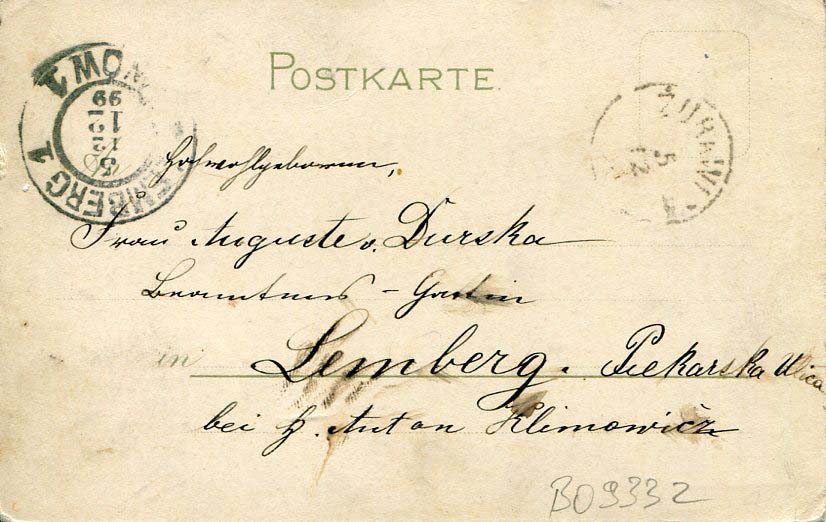 POSTKARTE.
LEMBERG 1
LWÓW 1
5
12
99
5
12
Hochwohlgeboren,
Frau Auguste v. Durska
Beamtens-Gattin
in Lemberg. Piekarska Ulica
bei H. Anton Klimowicz
BO9332